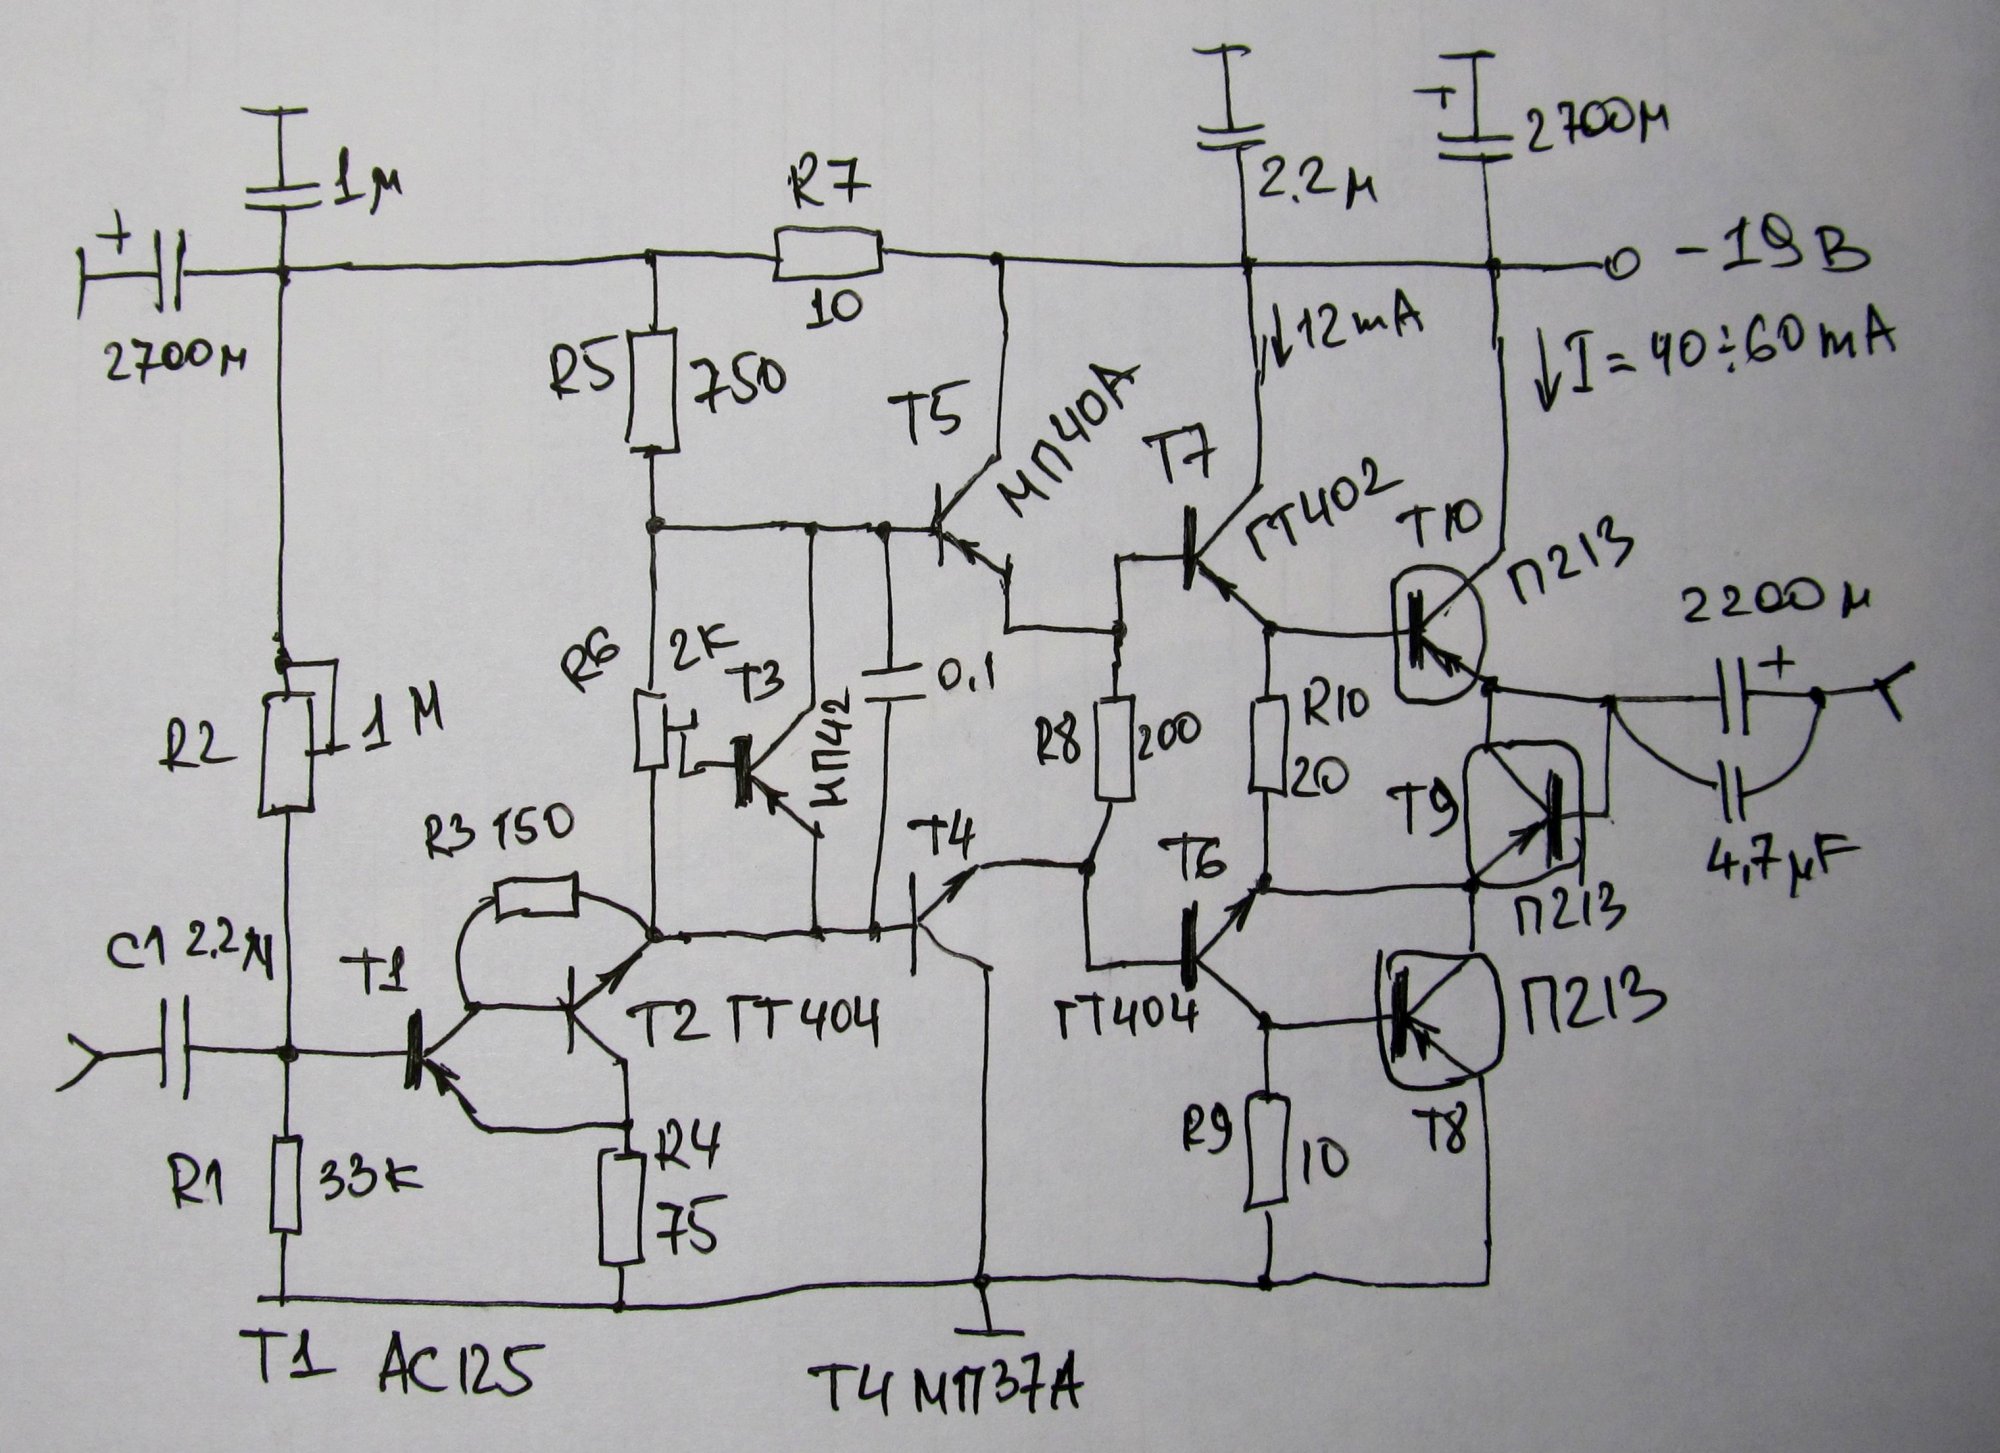 1м
+
2700м
R7
10
2.2м
+
2700м
-19В
12mA
I=40÷60mA
R5
750
T5
МП40А
T7
ГТ402
T10
П213
2200м
+
R2
1М
R6
2К
T3
МП42
0,1
R8
200
R10
20
T9
П213
4,7μF
R3 150
T4
T6
C1 2.2м
T1
T2 ГТ404
ГТ404
П213
T8
R1
33К
R4
75
R9
10
T1 АС125
T4 МП37А